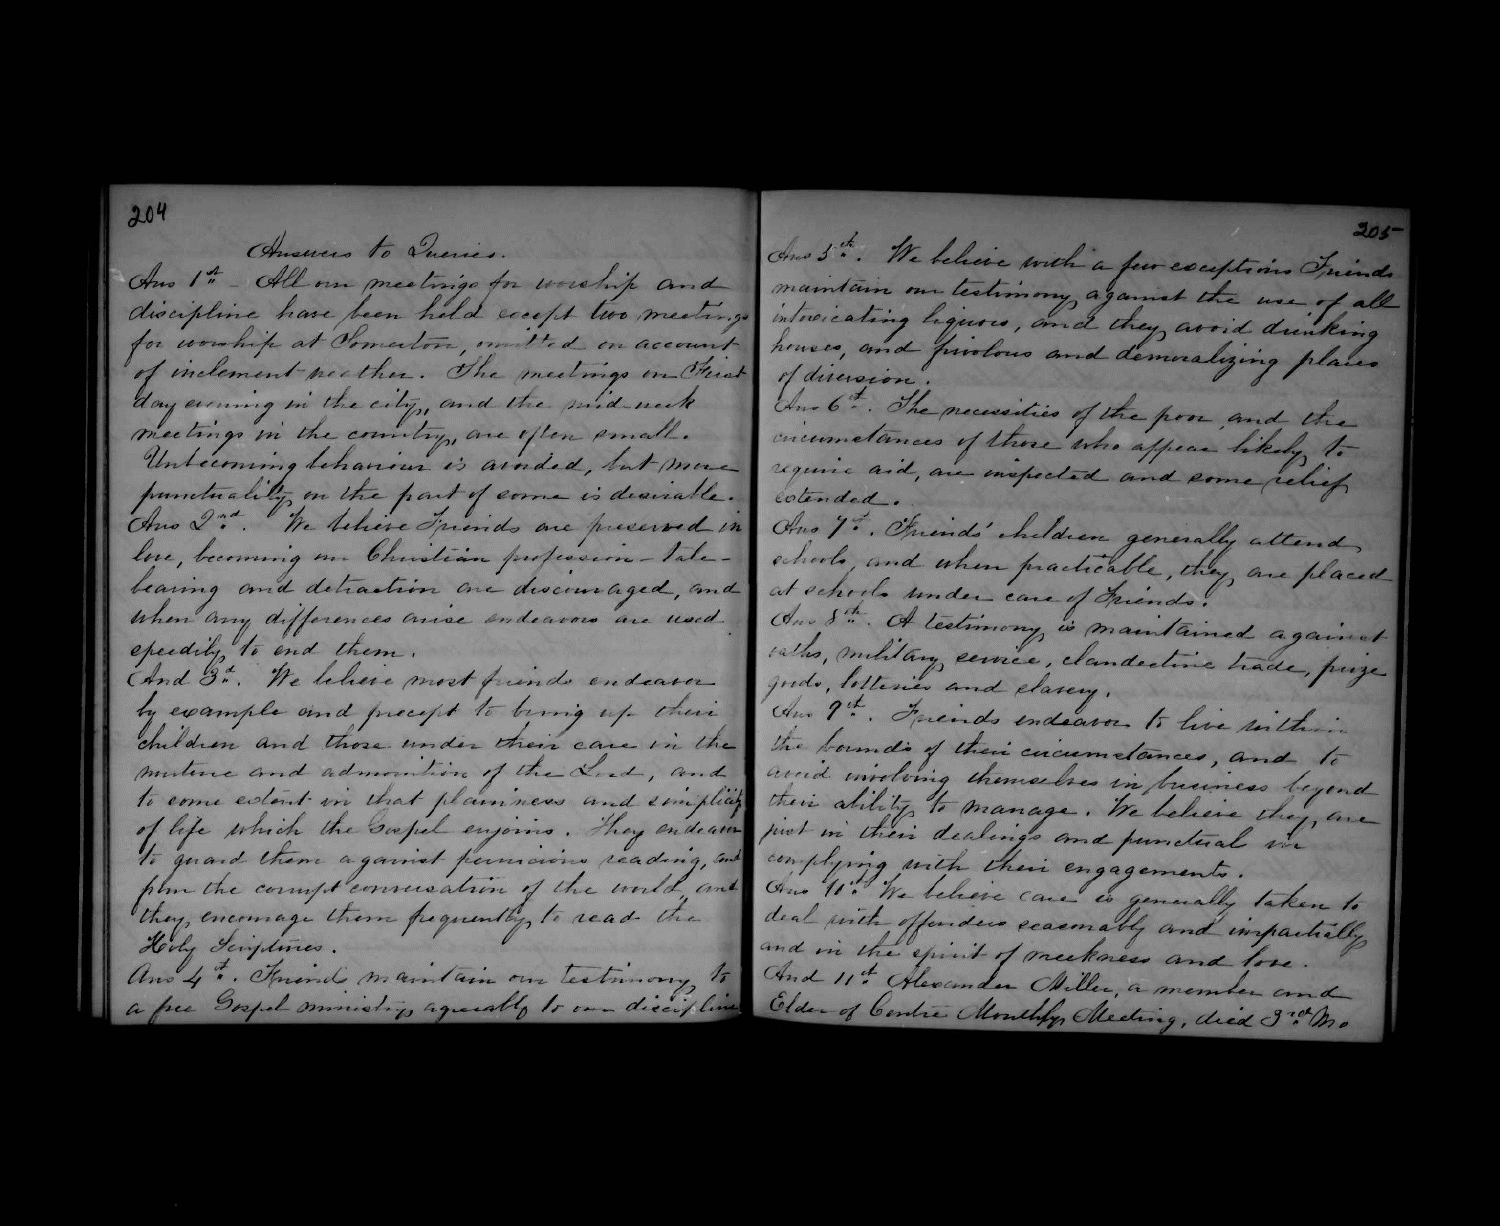 204
Answers to Queries.
Ans 1st - All our meetings for worship and
discipline have been held except two meetings
for worship at Somerton, omitted on account
of inclement weather. The meetings on First
day evening in the city, and the mid-week
meetings in the country, are often small.
Unbecoming behaviour is avoided, but more
punctuality on the part of some is desirable.
Ans 2nd. We believe Friends are preserved in
love, becoming our Christian profession - tale-
bearing and detraction are discouraged, and
when any differences arise endeavors are used
speedily to end them.
Ans 3d. We believe most friends endeavor
by example and precept to bring up their
children and those under their care in the
nurture and admonition of the Lord, and
to some extent in that plainness and simplicity
of life which the Gospel enjoins. They endeavor
to guard them against pernicious reading, and
from the corrupt conversation of the world, and
they encourage them frequently to read the
Holy Scriptures.
Ans 4th. Friends maintain our testimony to
a free Gospel ministry, agreeably to our discipline
205
Ans 5th. We believe with a few exceptions Friends
maintain our testimony against the use of all
intoxicating liquors, and they avoid drinking
houses, and frivolous and demoralizing places
of diversion.
Ans 6th. The necessities of the poor, and the
circumstances of those who appear likely to
require aid, are inspected and some relief
extended.
Ans 7th. Friends' children generally attend
schools, and when practicable, they are placed
at schools under care of Friends.
Ans 8th. A testimony is maintained against
oaths, military service, clandestine trade, prize
goods, lotteries and slavery.
Ans 9th. Friends endeavor to live within
the bounds of their circumstances, and to
avoid involving themselves in business beyond
their ability to manage. We believe they are
just in their dealings and punctual in
complying with their engagements.
Ans 10th We believe care is generally taken to
deal with offenders seasonably and impartially
and in the spirit of meekness and love.
And 11th Alexander Miller, a member and
Elder of Centre Monthly Meeting, died 3rd Mo